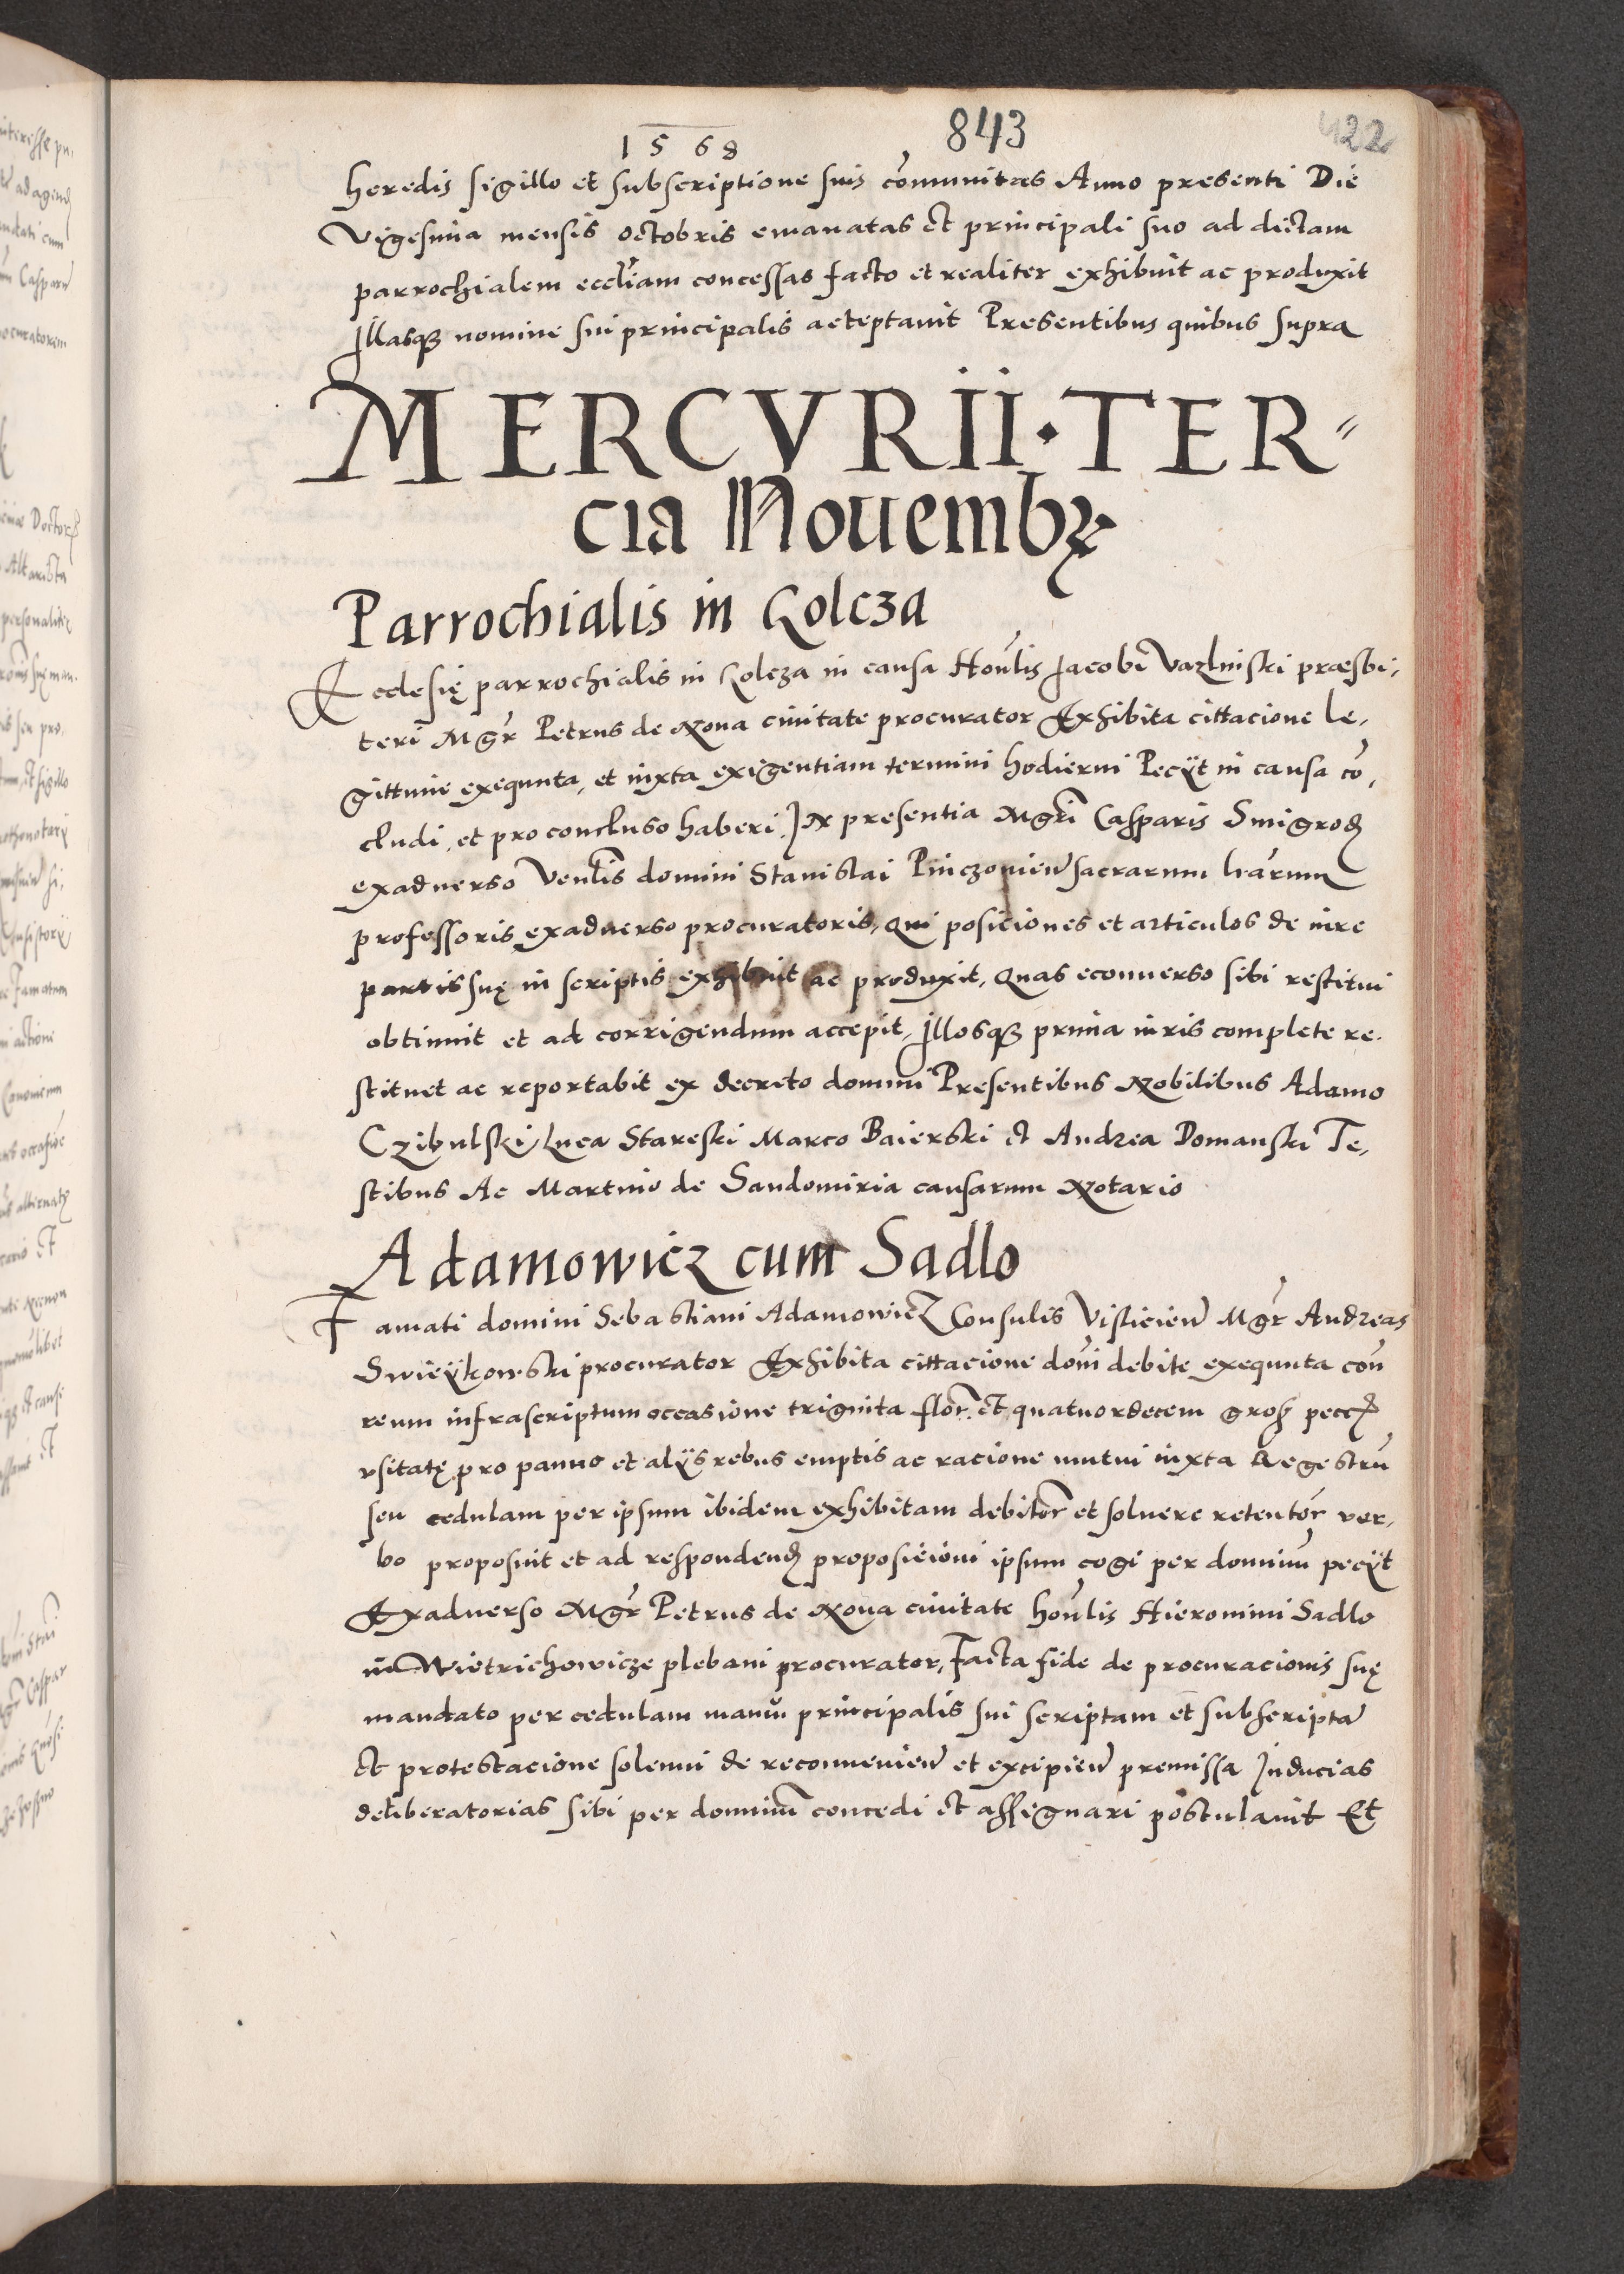 1568 843 422
heredis sigillo et subscriptione suis com̄unitas Anno presenti Die
Vigesima mensis octobris emanatas et principali suo ad dictam
parrochialem eccl̄iam concessas facto et realiter exhibuit ac produxit
Illasqꝫ nomine sui principalis acceptauit Presentibus quibus supra
MERCVRII·TER⸗
cia Nouembꝝ
Parrochialis in Golcza
Ecclesię parrochialis in Golcza in causa Hon̄lis Jacobi Vazlinski præsbi,
teri Mgr̄ Petrus de Noua ciuitate procurator Exhibita cittacione le,
gittime exequuta, et iuxta exigentiam termini hodierni Pecÿt in causa cō,
cludi, et pro concluso haberi, In presentia Mgrī Casparis Smigroꝺ
exaduerso Ven̄lis domini Stanislai Pinczouieñ sacrarum lr̄arum
professoris exaduerso procuratoris, Qui posiciones et articulos de iure
partis suę in scriptis exhibuit ac produxit, Quas econuerso sibi restitui
obtinuit et ad corrigendum accepit, Illosqꝫ prima iuris complete re.
stituet ac reportabit ex decreto domini Presentibus Nobilibus Adamo
Czibulski, Luca Stareski Marco Baierski et Andrea Domanski Te,
stibus Ac Martino de Sandomiria causarum Notario
Adamowicz cum Sadlo
Famati domini Sebastiani Adamowicz Consulis Visliciēn Mgr̄ Andreas
Swieÿkowski procurator Exhibita cittacione dom̄i debite exequuta con̄
reum infrascriptum occasione triginta flor̄. et quatuordecem gros̄ pecc̄
vsitatę pro panno et alÿs rebus emptis ac racione mutui iuxta Regestrū
seu cedulam per ipsum ibidem exhibitam debitor̄ et soluere retentor̄ ver,
bo proposuit et ad respondenꝺ proposicioni ipsum cogi per dominū pecÿt
Exaduerso Mgr̄ Petrus de Noua ciuitate hon̄lis Hieronimi Sadlo
in Wietrichowicze plebani procurator, Facta fide de procuracionis suę
mandato per cedulam manu principalis sui scriptam et subscriptā
et protestacione solenni de reconueniēn et excipiēn premissa Inducias
deliberatorias sibi per dominū concedi et assignari postulauit Et